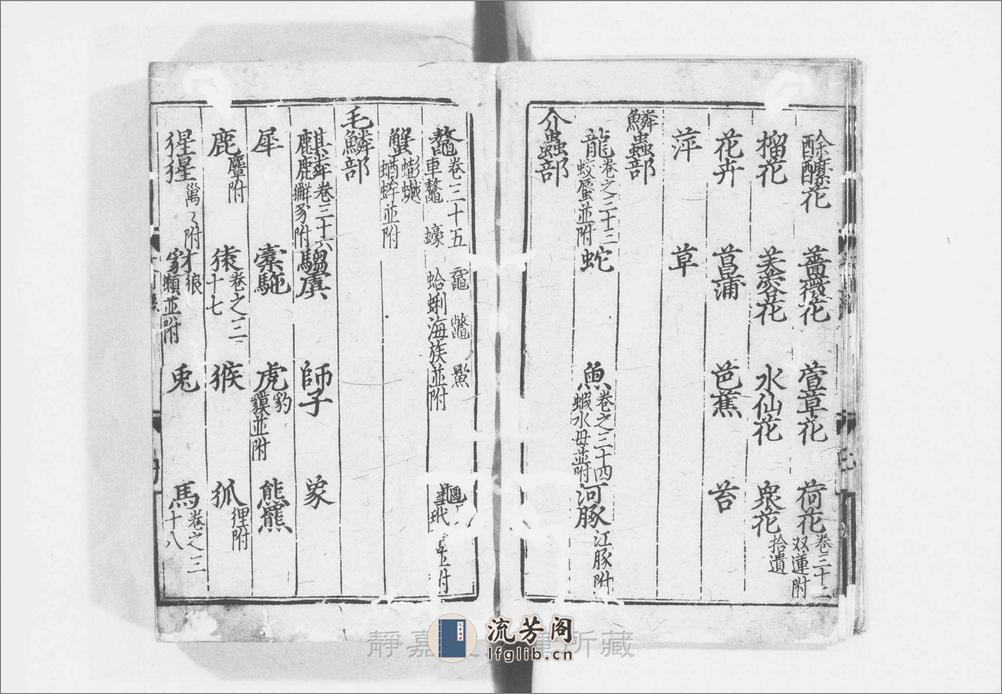 酴醿花 薔薇花 萱草花 荷花 卷三十二 双蓮附
榴花 美蓉花 水仙花 衆花 拾遺
花卉 菖蒲 芭蕉 苔
萍 草
鱗蟲部
龍 卷之三十三 蛟蜃並附 蛇 魚 卷之三十四 蝦水母並附 河豚 江豚附
介蟲部
鼇 卷三十五 車鼇 蠔 黿 鼈 鱟 蛤蜊海族並附
蟹 蟛蚏 蝤蛑並附
毛鱗部
麒麟 卷三十六 鹿獬豸附 騶虞 師子 象
犀 橐駞 虎 豹 貘並附 熊羆
鹿 麞附 猿 卷之三十七 猴 狐 狸附
猩猩 附 豺狼 類並附 兎 馬 卷之三十八
靜嘉 所藏
流芳阁
lfglib.cn